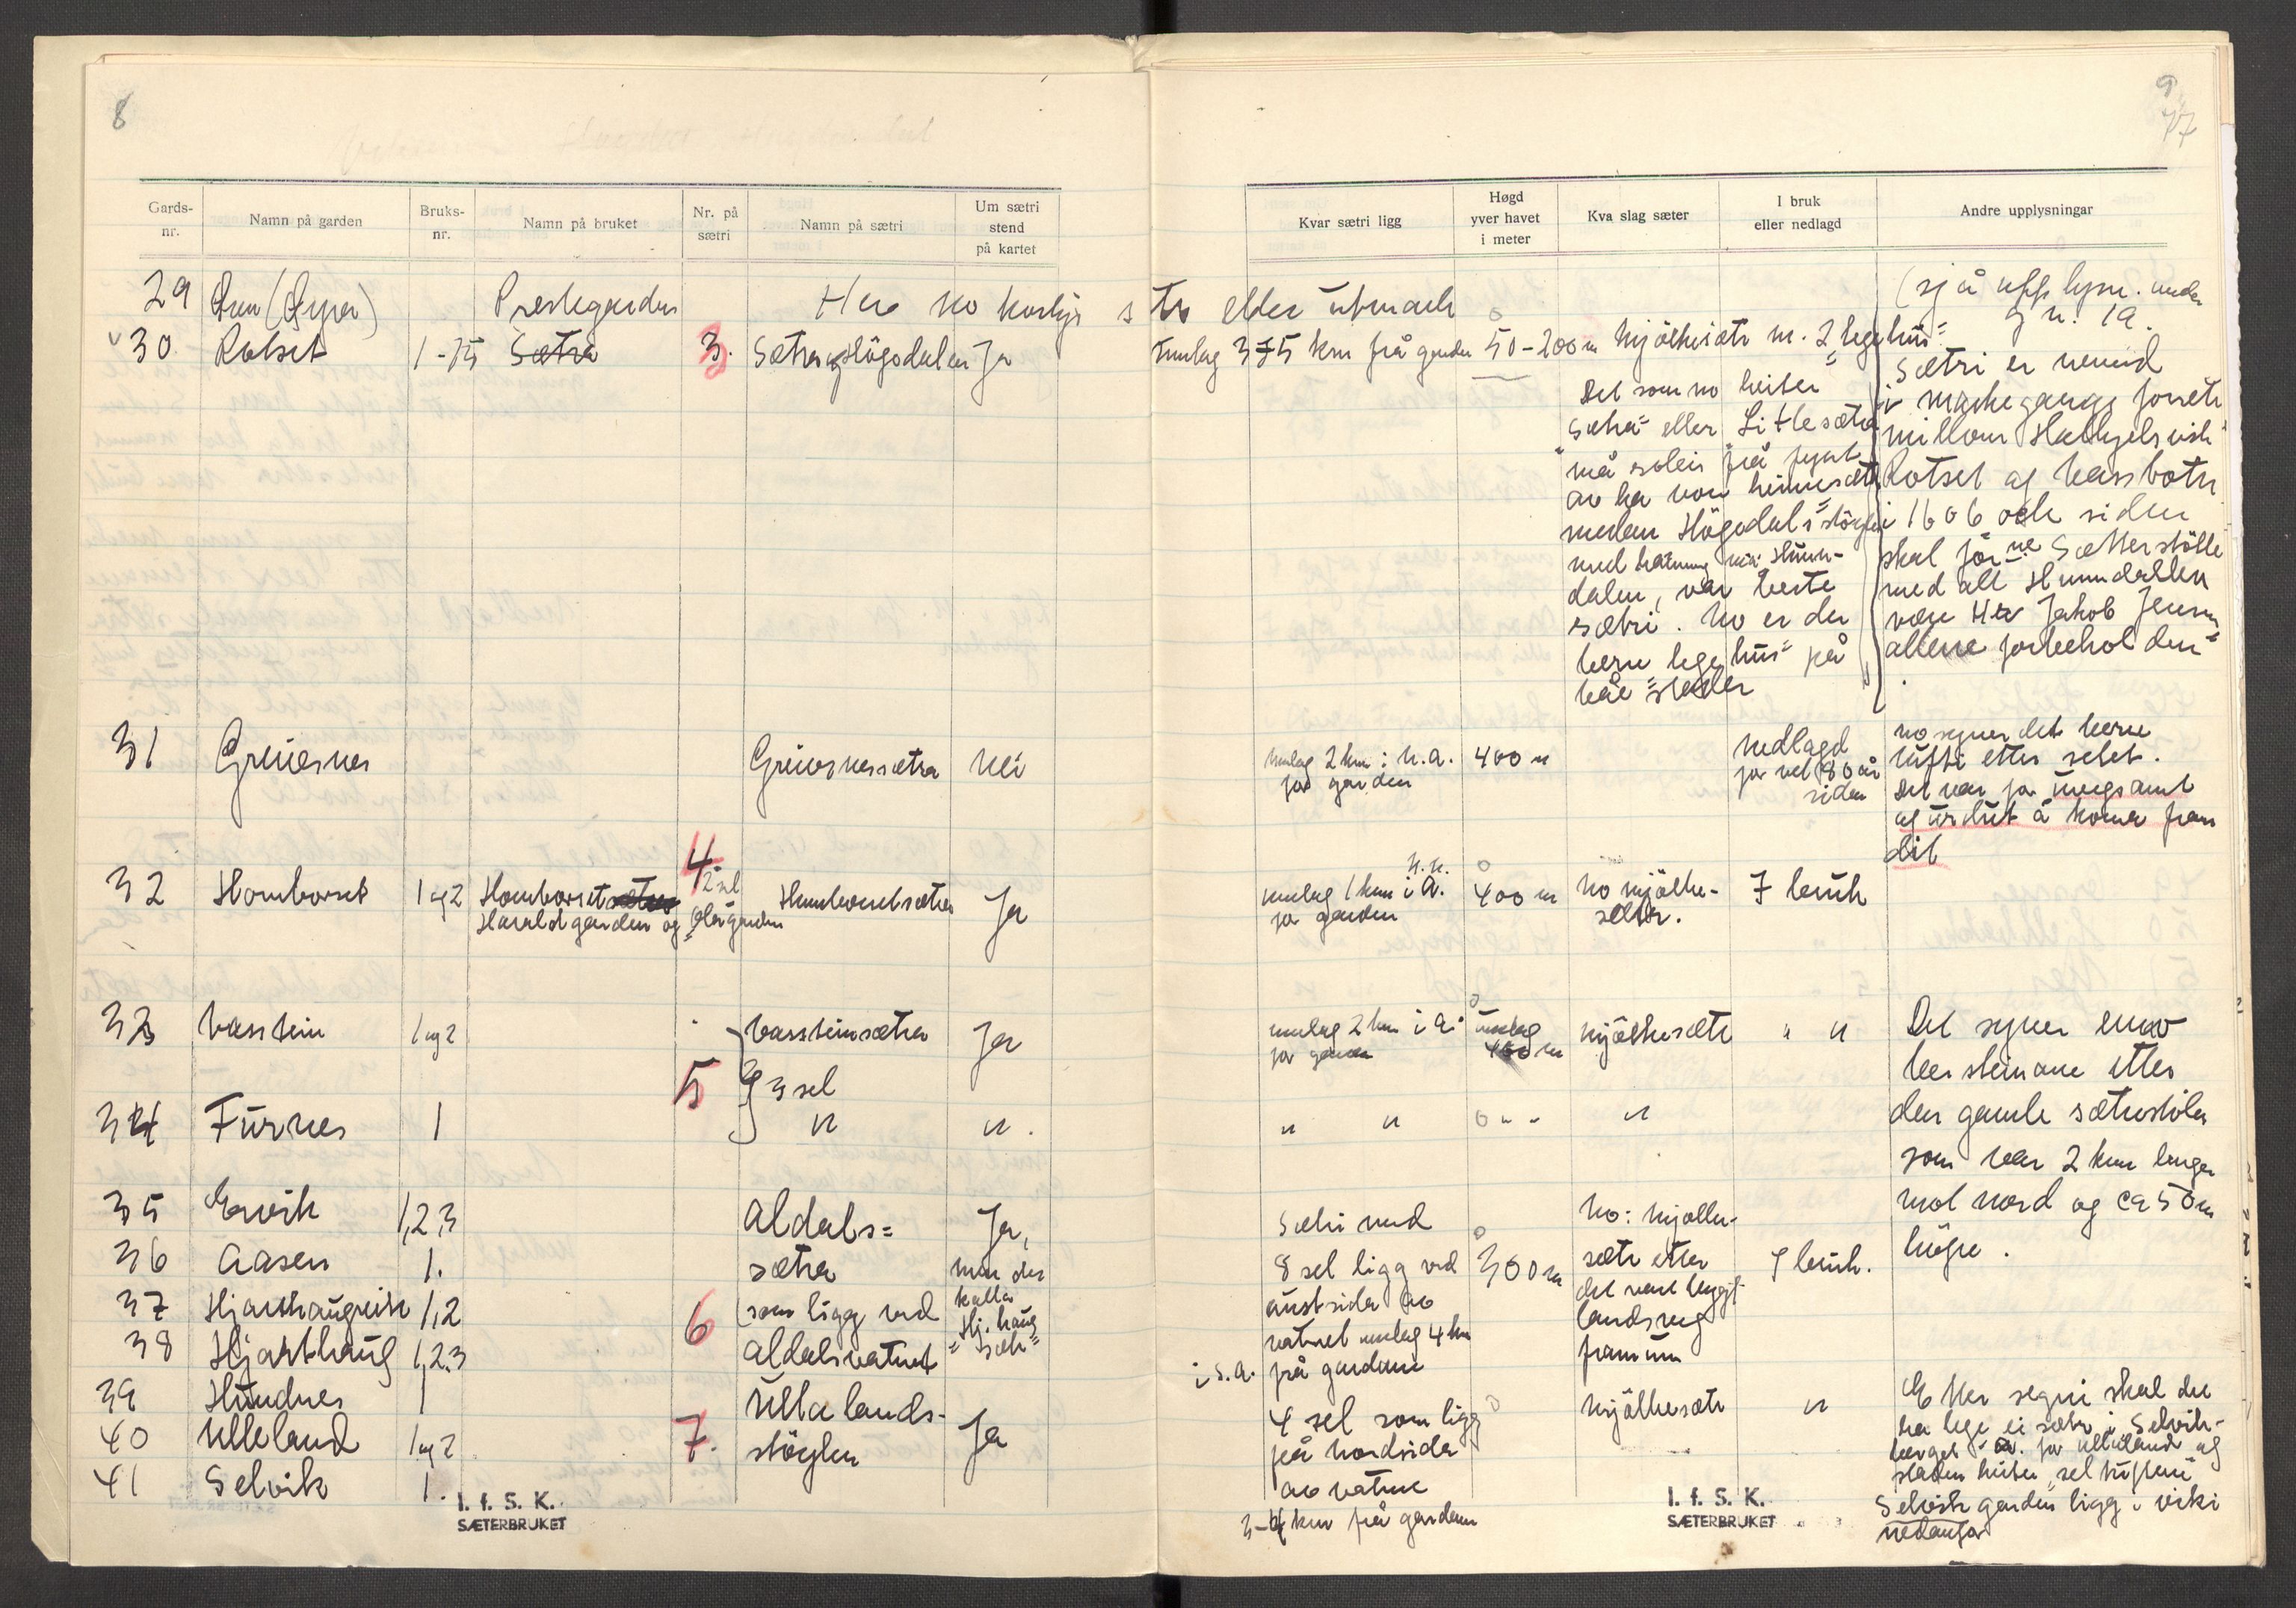 8
Gards-
nr.
Namn på garden
Bruks-
nr.
Namn på bruket
Nr. på
sætri
Namn på sætri
Um sætri
stend
på kartet
29
(Øyra)
Prestegarden
Her no korkje
30
Rotset
1-15
Sætra
3.
Sætra og Högedalen
Ja
31
Greivsnes
Greivsnessætra
nei
32
Homborset
1 og 2
Homborset
Haraldgarden og Olagarden
4
2 sel
Homborsetsætra
Ja
33
Vasstein
1 og 2
Vassteinsætra
Ja
5
3 sel
34
Furnes
1
"
" .
35
Ervik
1,2,3
Aldals=
Ja,
36
Aasen
1.
sætra
men der
37
Hjarthaugvik
1,2
6
som ligg ved
kalla
Hj. haug
38
Hjarthaug
1,2,3
Aldalsvatnet
"sætr"
39
Hundnes
1
Ullalands-
40
Ulleland
1 og 2
7.
støylen
Ja
41
Selvik
1.
I. f. S. K.
SÆTERBRUKET
9
77
Kvar sætri ligg
Høgd
yver havet
i meter
Kva slag sæter
I bruk
eller nedlagd
Andre upplysningar
sætr elder utmark
(sjå upplysn. under
g. n. 19.
umlag 3 km frå garden
50-200 m
mjølkesætr m. 2 lege hus
Det som no heiter
Sætra eller Litlesætra
må soleis frå fyrst
av ha vore heimesætr
medan Högedalsstöylen
med
dalen, var beste
sætri. No er der
berre lege hus på
båe stader
Sætri er nemnd
i markegangsforretn
millom Halkjelsvik
Rotset og Vassbotn
i 1606 och siden
skal förne Sætterstölle
med alt Hunndallen
være Hr Jakob Jensen
allene forbeholden"
umlag 2 km i n.a.
for garden
400 m
nedlagd
for vel 80 år
siden
no syner det berre
tufti etter selet.
Det var for uvegsamt
og urdut å koma fram
dit
umlag 1 km i n.n.a.
for garden
400 m
no mjølke-
sætr.
I bruk
umlag 2 km i a.
for garden
umlag
400 m
mjølkesætr
" "
Det syner enno
ber steinane etter
den gamle sætrestølen
som var 2 km lenger
mot nord og ca 50 m
høgre.
" "
" "
"
Sætri med
8 sel ligg ved
austsida av
vatnet umlag 4 km
i s.a. frå gardane
300 m
No: mjølke-
sætr etter
det vart bygt
landsveg
framum
I bruk.
4 sel som ligg
på nordsida
av vatnet
3-4 km frå gardane
mjølkesætr
"
Etter segni skal det
ha lege ei sætr i Selvik-
berget for Ulleland og
staden heiter "seltuftene"
Selvik garden ligg i viki
nedanfor
I. f. S. K.
SÆTERBRUKET